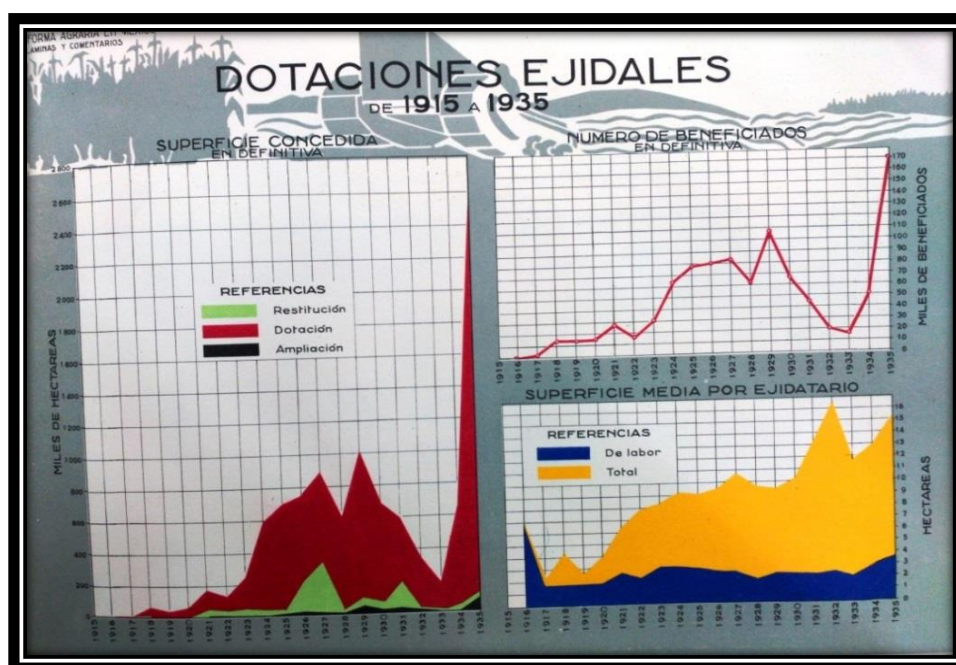 FORMA AGRARIA EN
LAMINAS Y COMENTARIOS
DOTACIONES EJIDALES
DE 1915 A 1935
SUPERFICIE CONCEDIDA
EN DEFINITIVA
2 800
2 600
2 400
2 200
2 000
1 800
1 600
1 400
1 200
1 000
800
600
400
200
MILES DE HECTAREAS
REFERENCIAS
Restitución
Dotación
Ampliación
1915
1916
1917
1918
1919
1920
1921
1922
1923
1924
1925
1926
1927
1928
1929
1930
1931
1932
1933
1934
1935
NUMERO DE BENEFICIADOS
EN DEFINITIVA
170
160
150
140
130
120
110
100
90
80
70
60
50
40
30
20
10
0
MILES DE BENEFICIADOS
1915
1916
1917
1918
1919
1920
1921
1922
1923
1924
1925
1926
1927
1928
1929
1930
1931
1932
1933
1934
1935
SUPERFICIE MEDIA POR EJIDATARIO
REFERENCIAS
De labor
Total
16
15
14
13
12
11
10
9
8
7
6
5
4
3
2
1
0
HECTAREAS
1915
1916
1917
1918
1919
1920
1921
1922
1923
1924
1925
1926
1927
1928
1929
1930
1931
1932
1933
1934
1935